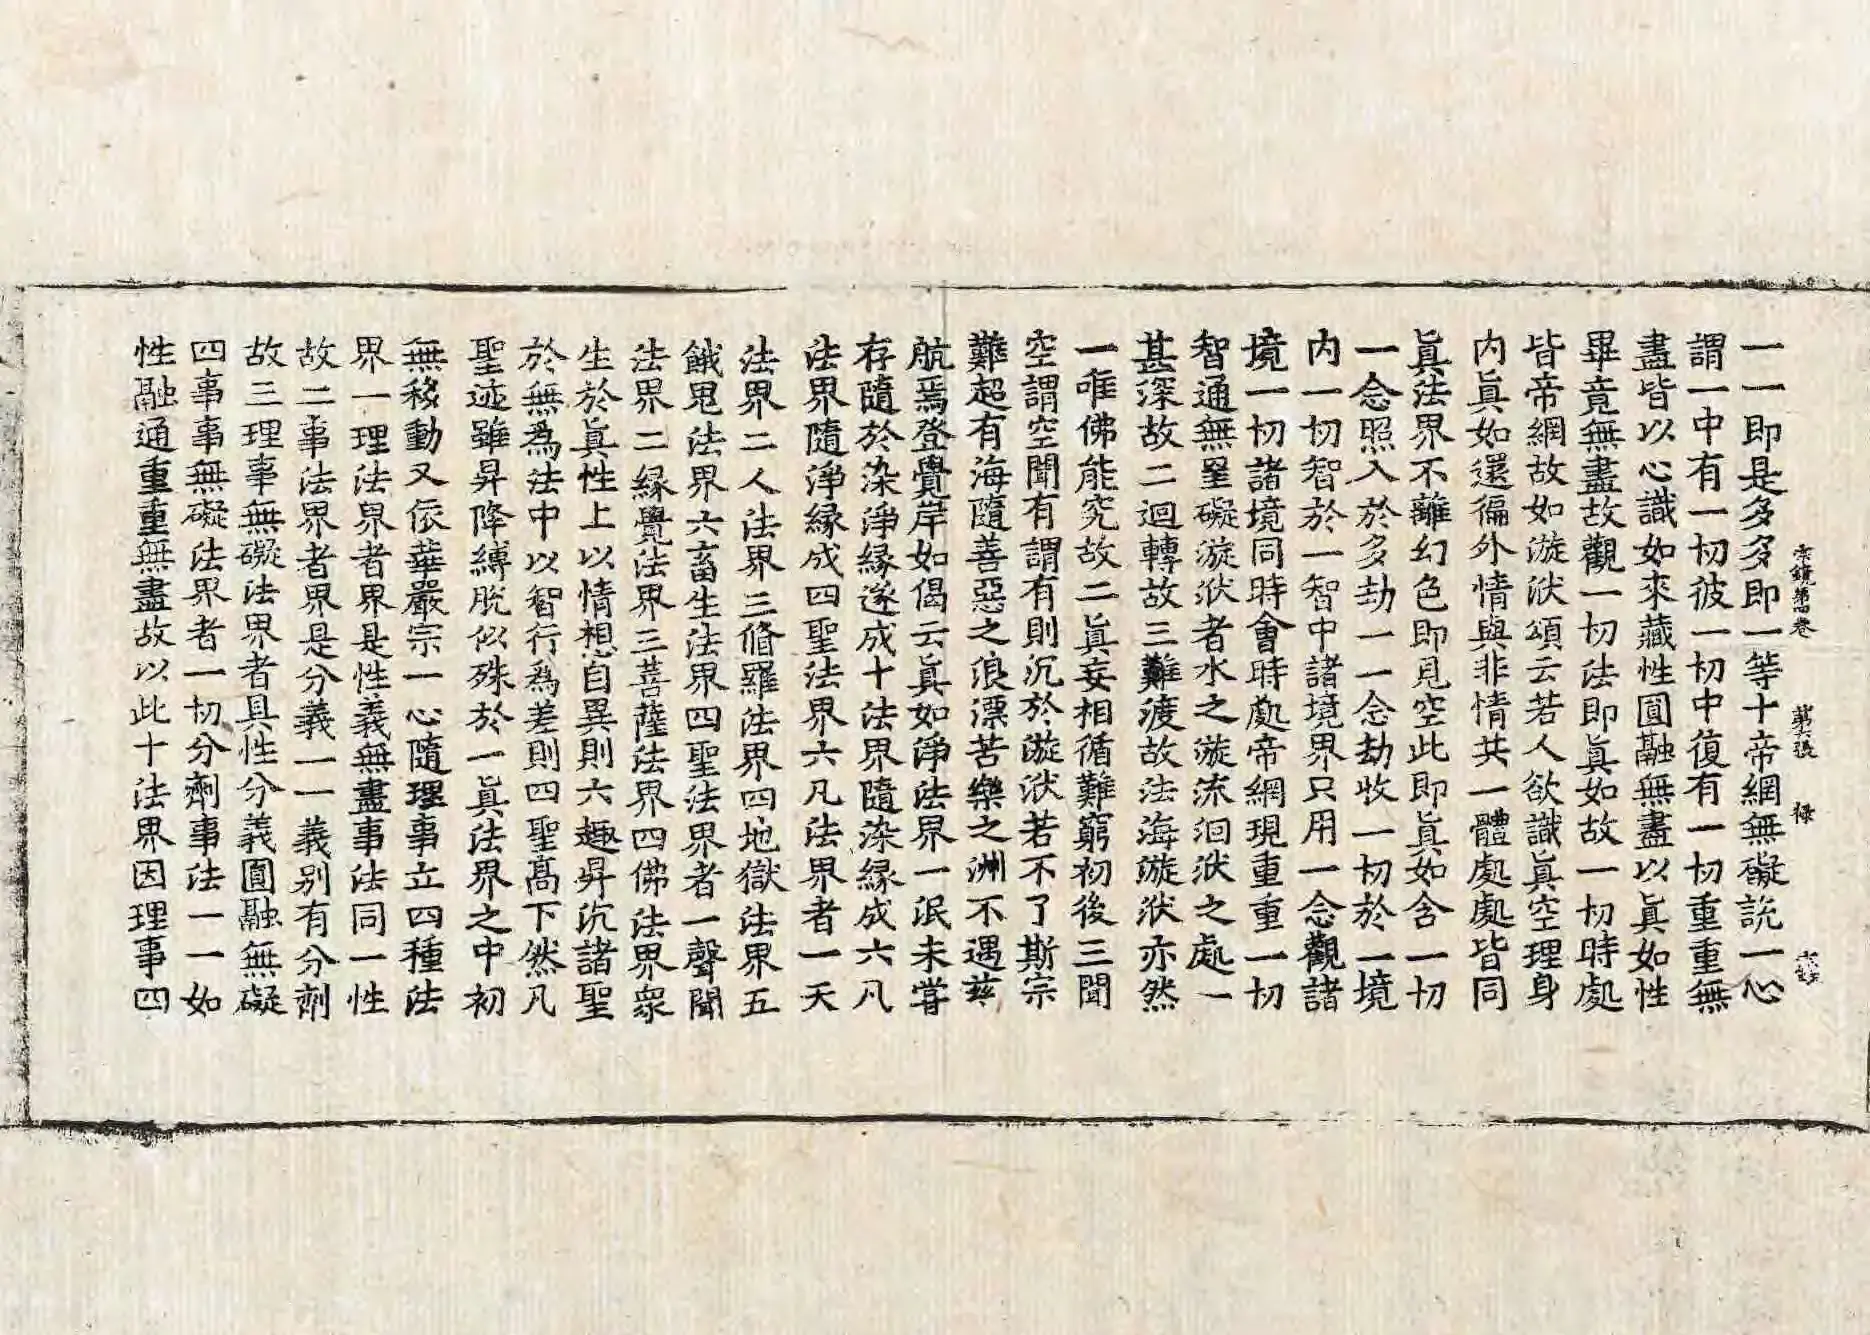 宗鏡第四卷 張 祿
一一即是多多即一等十帝網無礙說一心
謂一中有一切彼一切中復有一切重重無
盡皆以心識如來藏性圓融無盡以眞如性
畢竟無盡故觀一切法即眞如故一切時處
皆帝網故如漩洑頌云若人欲識眞空理身
内眞如還徧外情與非情共一體處處皆同
眞法界不離幻色即見空此即眞如含一切
一念照入於多劫一一念劫收一切於一境
内一切智於一智中諸境界只用一念觀諸
境一切諸境同時會時處帝網現重重一切
智通無罣礙漩洑者水之漩流洄洑之處一
甚深故二迴轉故三難渡故法海漩洑亦然
一唯佛能究故二眞妄相循難窮初後三聞
空謂空聞有謂有則沉於漩洑若不了斯宗
難超有海隨善惡之浪漂苦樂之洲不遇兹
航焉登覺岸如偈云眞如淨法界一泯未甞
存隨於染淨縁遂成十法界隨染縁成六凡
法界隨淨縁成四聖法界六凡法界者一天
法界二人法界三脩羅法界四地獄法界五
餓鬼法界六畜生法界四聖法界者一聲聞
法界二縁覺法界三菩薩法界四佛法界衆
生於眞性上以情想自異則六趣昇沉諸聖
於無爲法中以智行爲差則四聖高下然凡
聖迹雖昇降縛脫似殊於一眞法界之中初
無移動又依華嚴宗一心隨理事立四種法
界一理法界者界是性義無盡事法同一性
故二事法界者界是分義一一義別有分劑
故三理事無礙法界者具性分義圓融無礙
四事事無礙法界者一切分劑事法一一如
性融通重重無盡故以此十法界因理事四